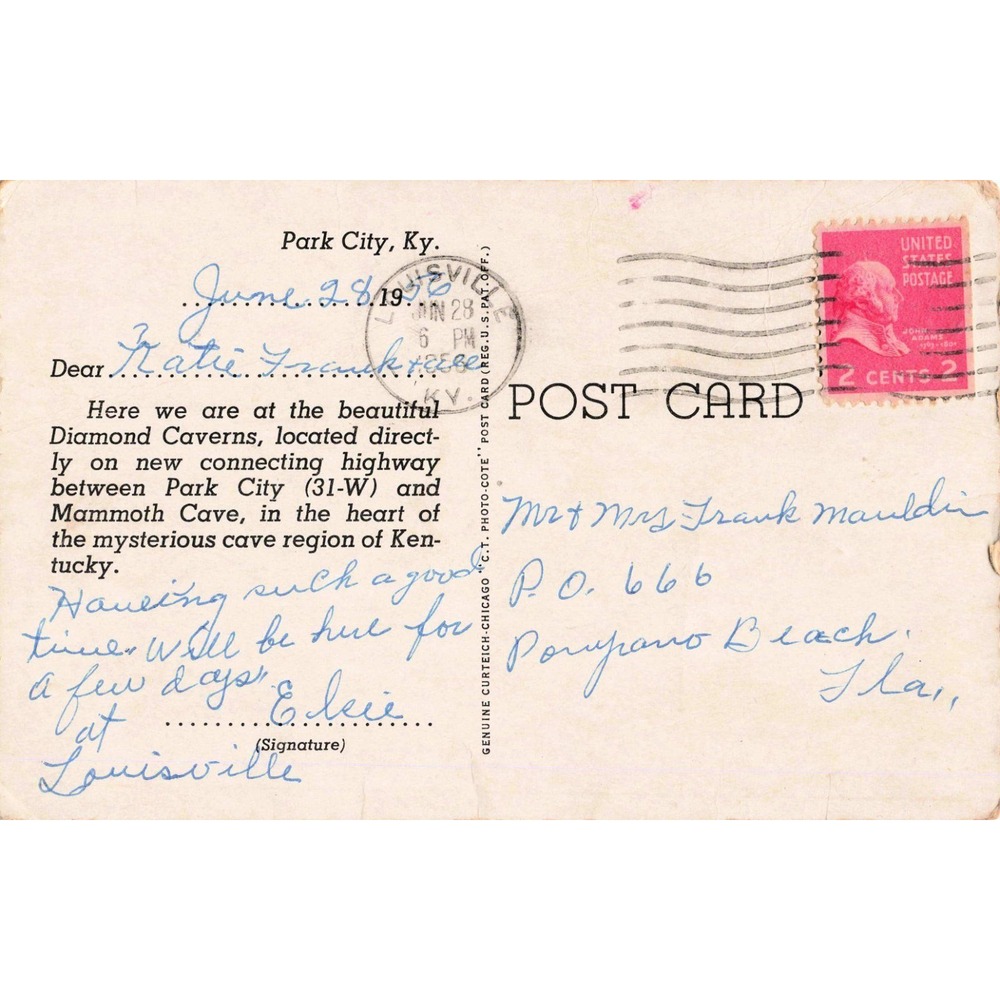 Park City, Ky.
June 28 1956
Dear Katie Frank & all
Here we are at the beautiful
Diamond Caverns, located direct-
ly on new connecting highway
between Park City (31-W) and
Mammoth Cave, in the heart of
the mysterious cave region of Ken-
tucky.
Haveing such a good
time. Will be here for
a few days.
Elsie
(Signature)
at
Louisville
GENUINE CURTEICH-CHICAGO "C.T. PHOTO-COTE" POST CARD (REG. U.S. PAT. OFF.)
LOUISVILLE
JUN 28
6 PM
1956
KY.
UNITED
STATES
POSTAGE
JOHN
ADAMS
1797-1801
2 CENTS 2
POST CARD
Mr & Mrs Frank Mauldin
P.O. 666
Pompano Beach.
Fla.,